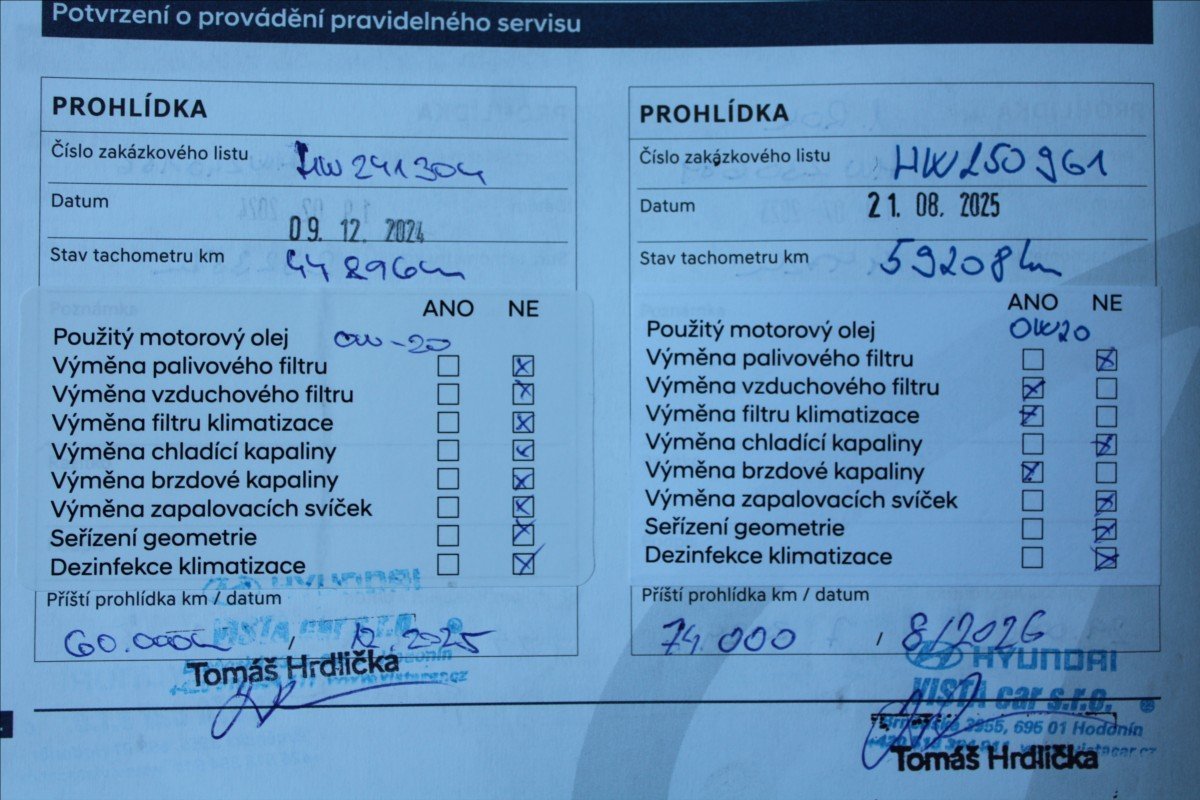 Potvrzení o provádění pravidelného servisu
PROHLÍDKA
Číslo zakázkového listu HW241304
Datum 09. 12. 2024
Stav tachometru km 44896km
ANO NE
Použitý motorový olej 0W-20
Výměna palivového filtru
Výměna vzduchového filtru
Výměna filtru klimatizace
Výměna chladící kapaliny
Výměna brzdové kapaliny
Výměna zapalovacích svíček
Seřízení geometrie
Dezinfekce klimatizace
Příští prohlídka km / datum
60.000km / 12.2025
HYUNDAI
VISTA car s.r.o.
Tomáš Hrdlička
PROHLÍDKA
Číslo zakázkového listu HW250961
Datum 21. 08. 2025
Stav tachometru km 59208km
ANO NE
Použitý motorový olej 0W20
Výměna palivového filtru
Výměna vzduchového filtru
Výměna filtru klimatizace
Výměna chladící kapaliny
Výměna brzdové kapaliny
Výměna zapalovacích svíček
Seřízení geometrie
Dezinfekce klimatizace
Příští prohlídka km / datum
74.000 / 8/2026
HYUNDAI
VISTA car s.r.o.
695 01 Hodonín
Tomáš Hrdlička